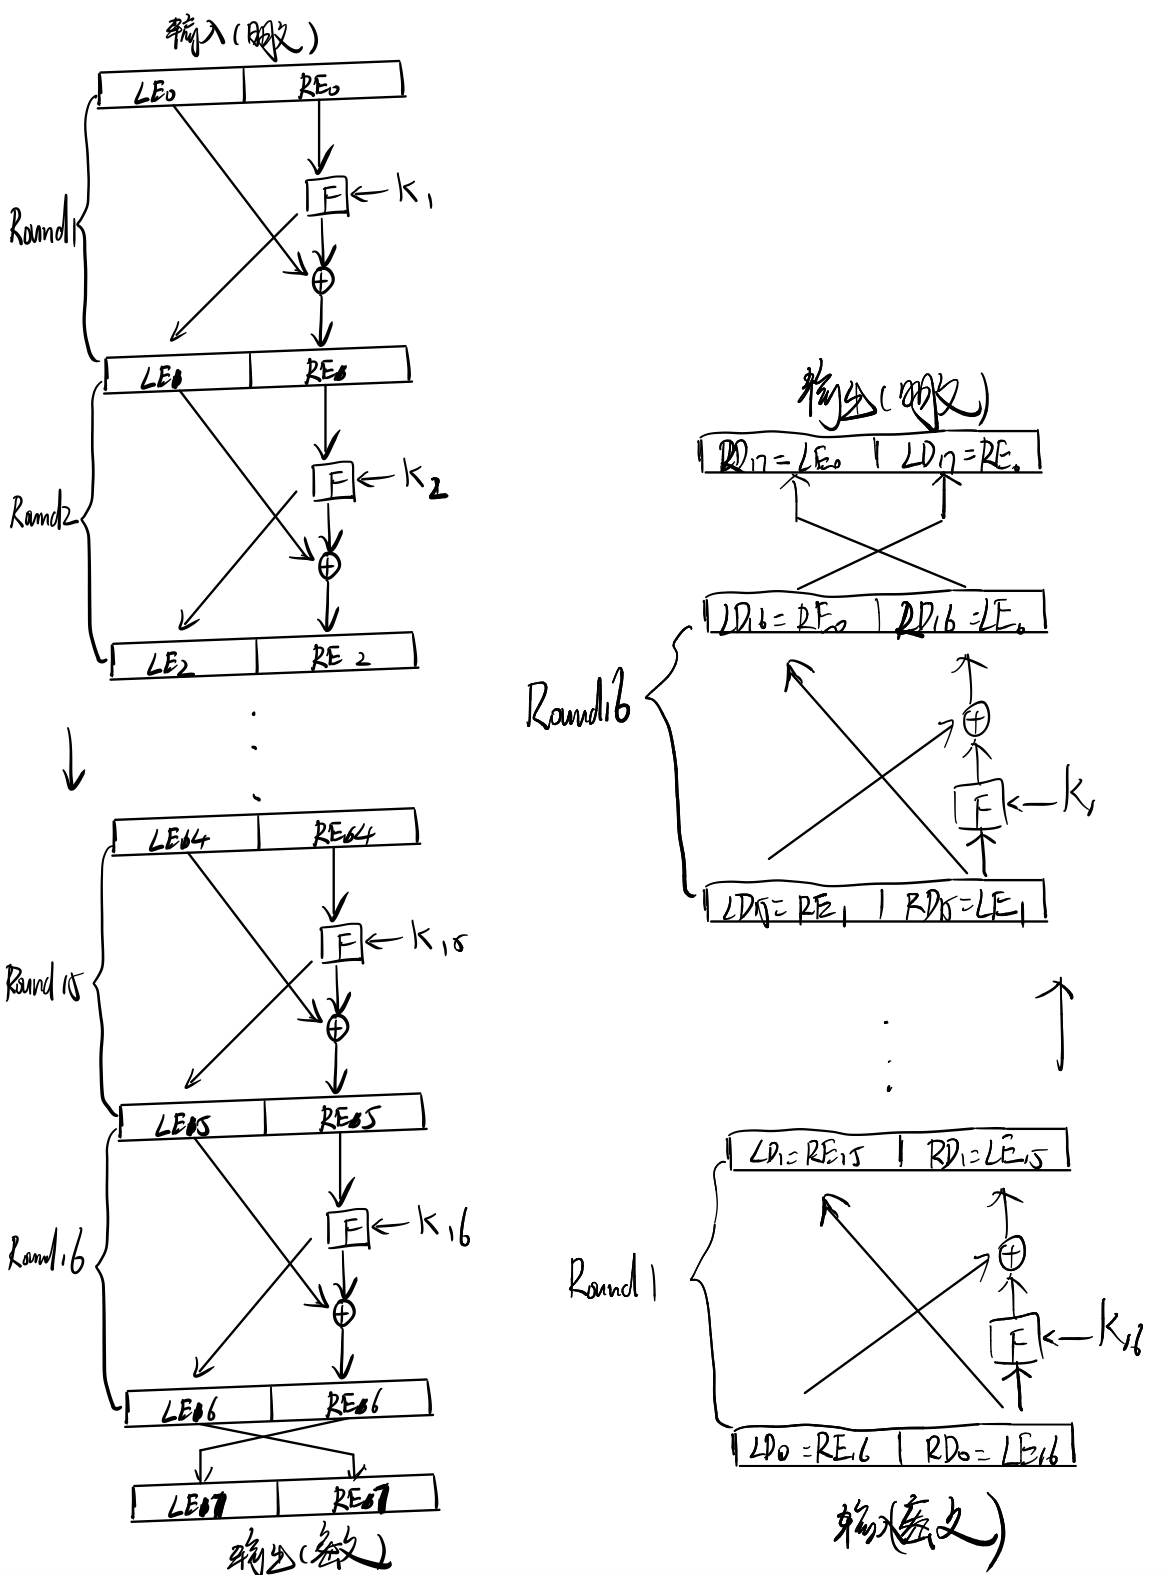 输入(明文)
LE0 RE0
F K1
Round1
LE1 RE1
F K2
Round2
LE2 RE2
LE14 RE14
F K15
Round15
LE15 RE15
F K16
Round16
LE16 RE16
LE17 RE17
输出(密文)
输出(明文)
RD17=LE0 LD17=RE0
LD16=RE0 RD16=LE0
Round16
F K1
LD15=RE1 RD15=LE1
LD1=RE15 RD1=LE15
Round1
F K16
LD0=RE16 RD0=LE16
输入(密文)